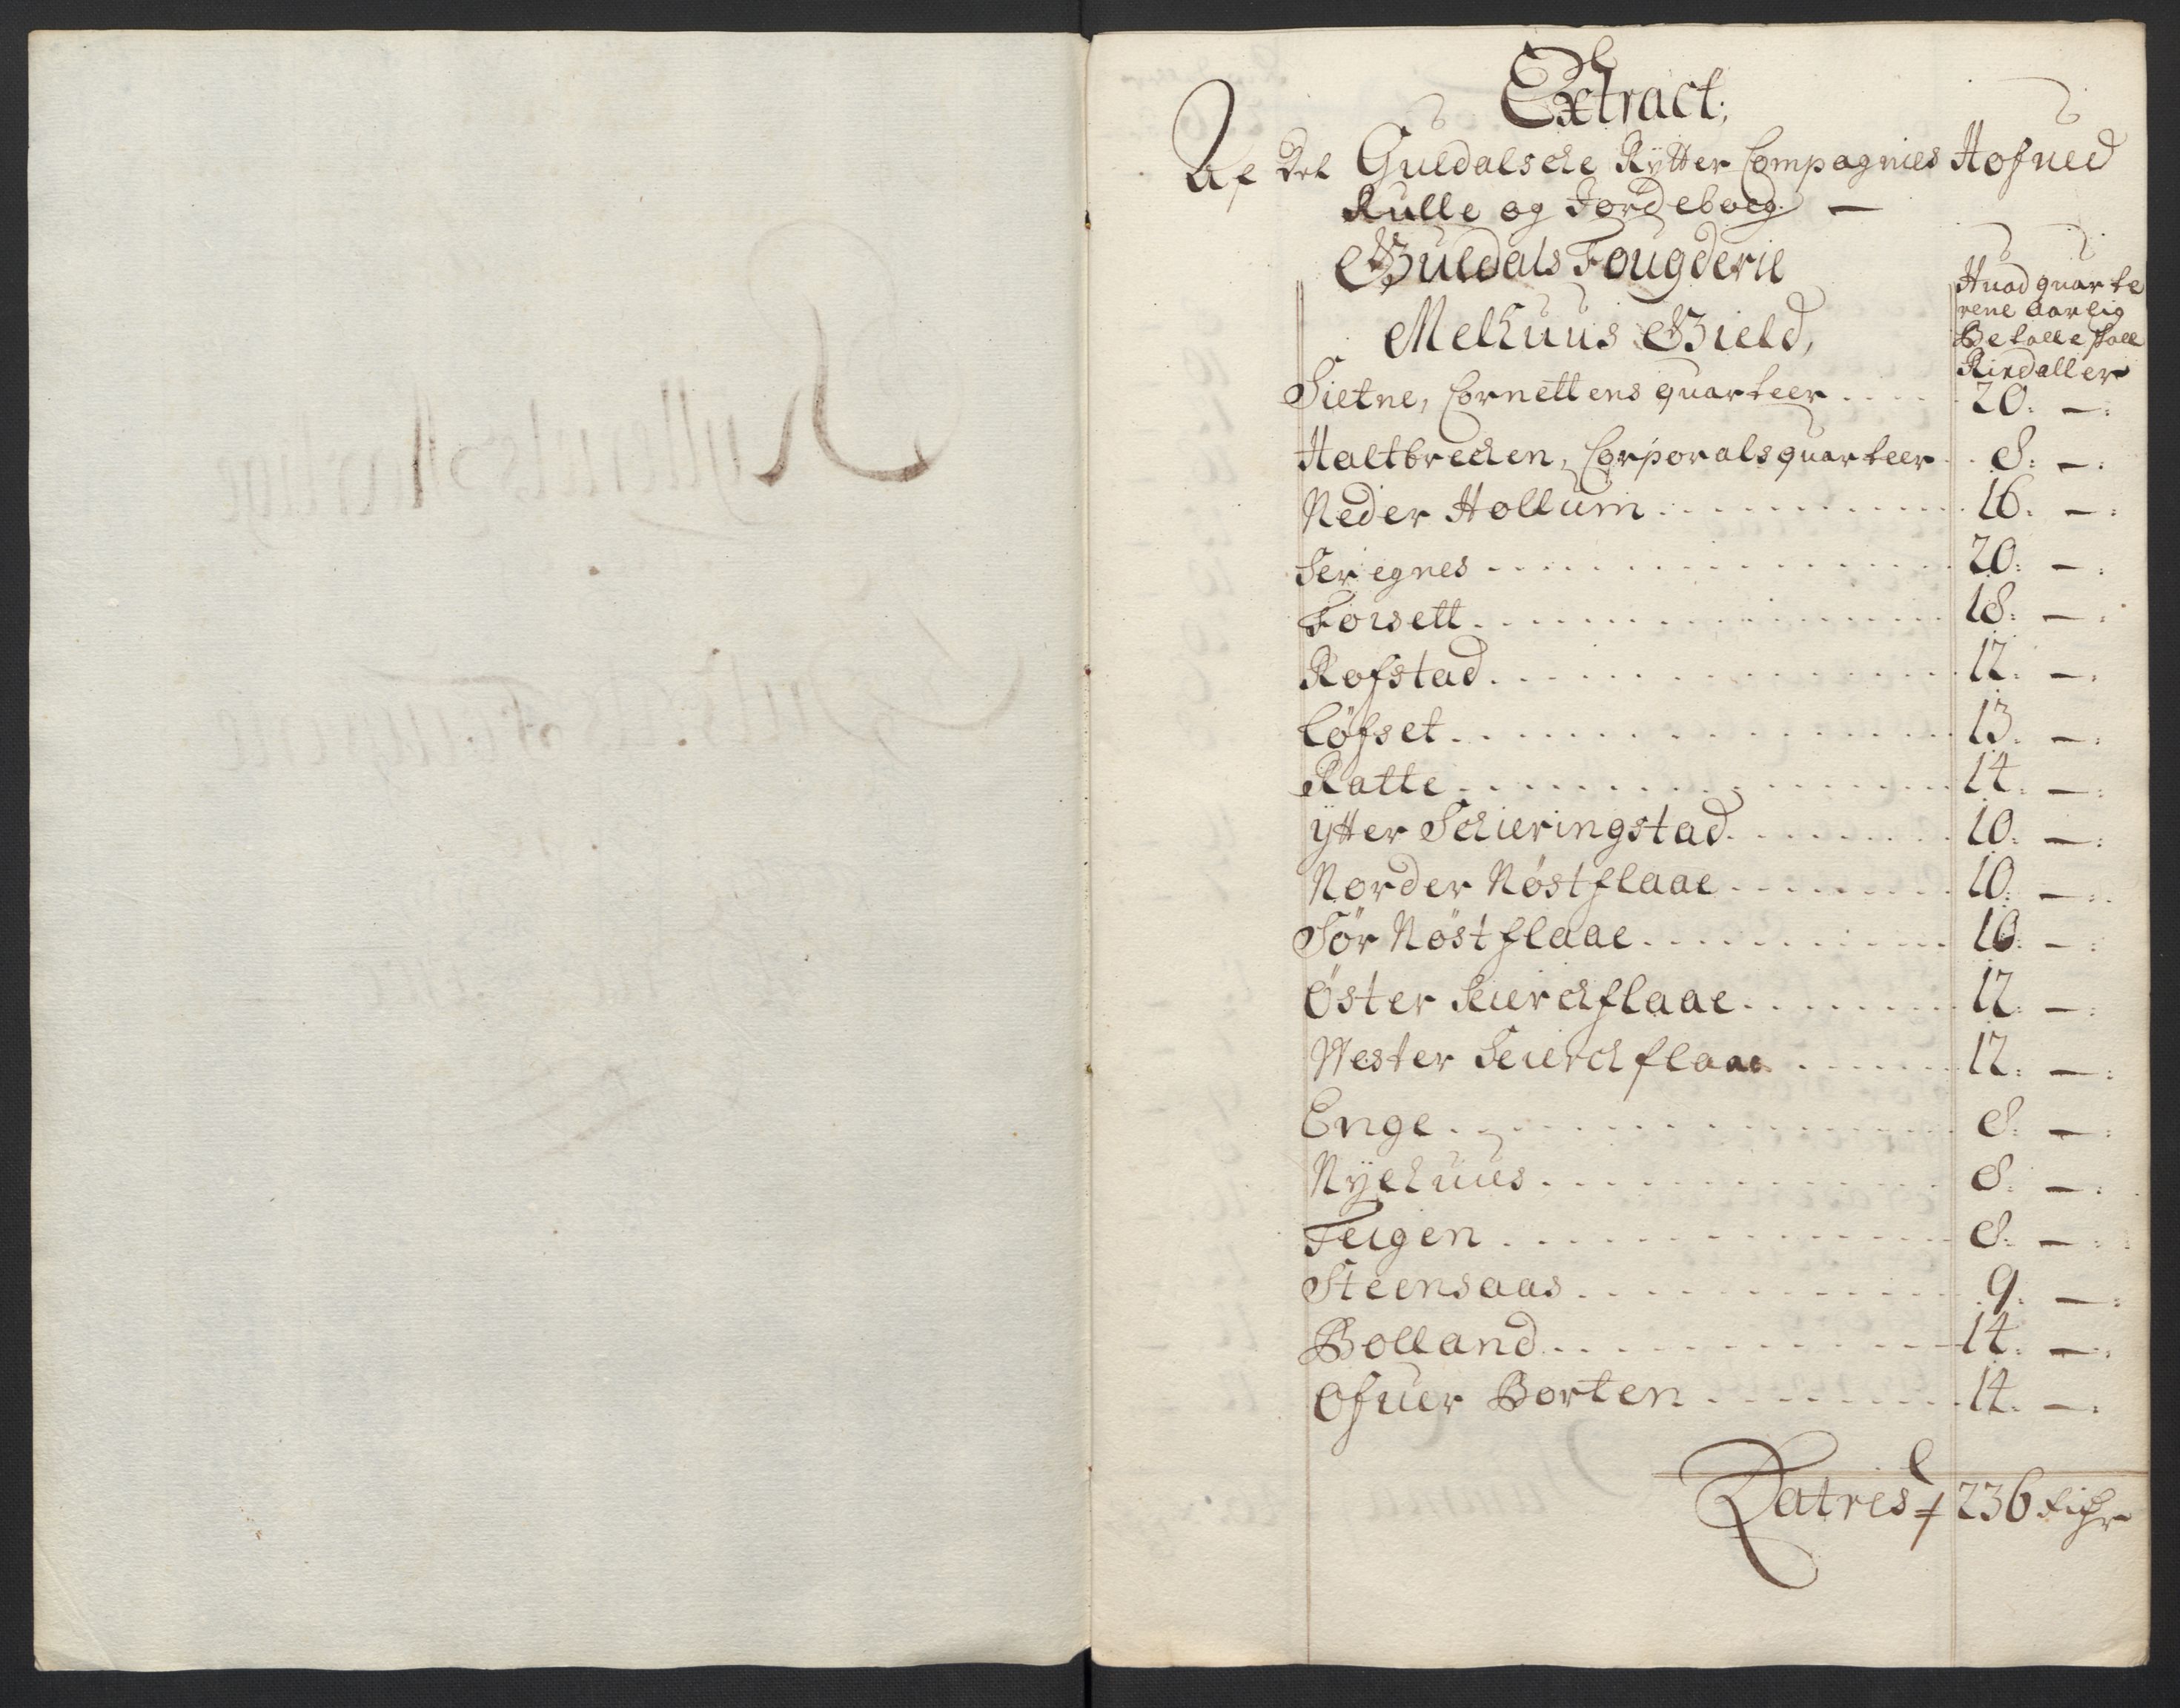 Extract;
Af Det Guldalsche Rytter Compagnies Hofued
Rulle og Jordeboeg. —
Guldals Fougderie
Huad quarte
rene aarlig
Betalle skall
Melhuus Gield,
Rixdaller
Sietne, Cornettens quarteer . . . . 20. —:
Haltbrechen, Corporals quarteer . . 8: —:
Neder Hollum . . . . . . . . . . . 16. —:
Ser egnes . . . . . . . . . . . . . 20: —:
Forsett . . . . . . . . . . . . . . 18: —:
Rofstad . . . . . . . . . . . . . . 12. —:
Løfset . . . . . . . . . . . . . . . 13. —:
Ratte . . . . . . . . . . . . . . . 14. —:
ÿtter Schieringstad . . . . . . . . 10. —:
Norder Nöstflaae . . . . . . . . . 10. —:
Sör Nöstflaae . . . . . . . . . . . —:
Öster Kierchflaae . . . . . . . . . 12. —:
Wester Kierchflaae . . . . . . . . 12. —:
Enge . . . . . . . . . . . . . . . 8: —:
Nÿehuus . . . . . . . . . . . . . . 8. —:
Teigen . . . . . . . . . . . . . . 8: —:
Steensaas . . . . . . . . . . . . . 9. —:
Bolland . . . . . . . . . . . . . . 14. —:
Ofuer Borten . . . . . . . . . . . 14. —:
Latres 236